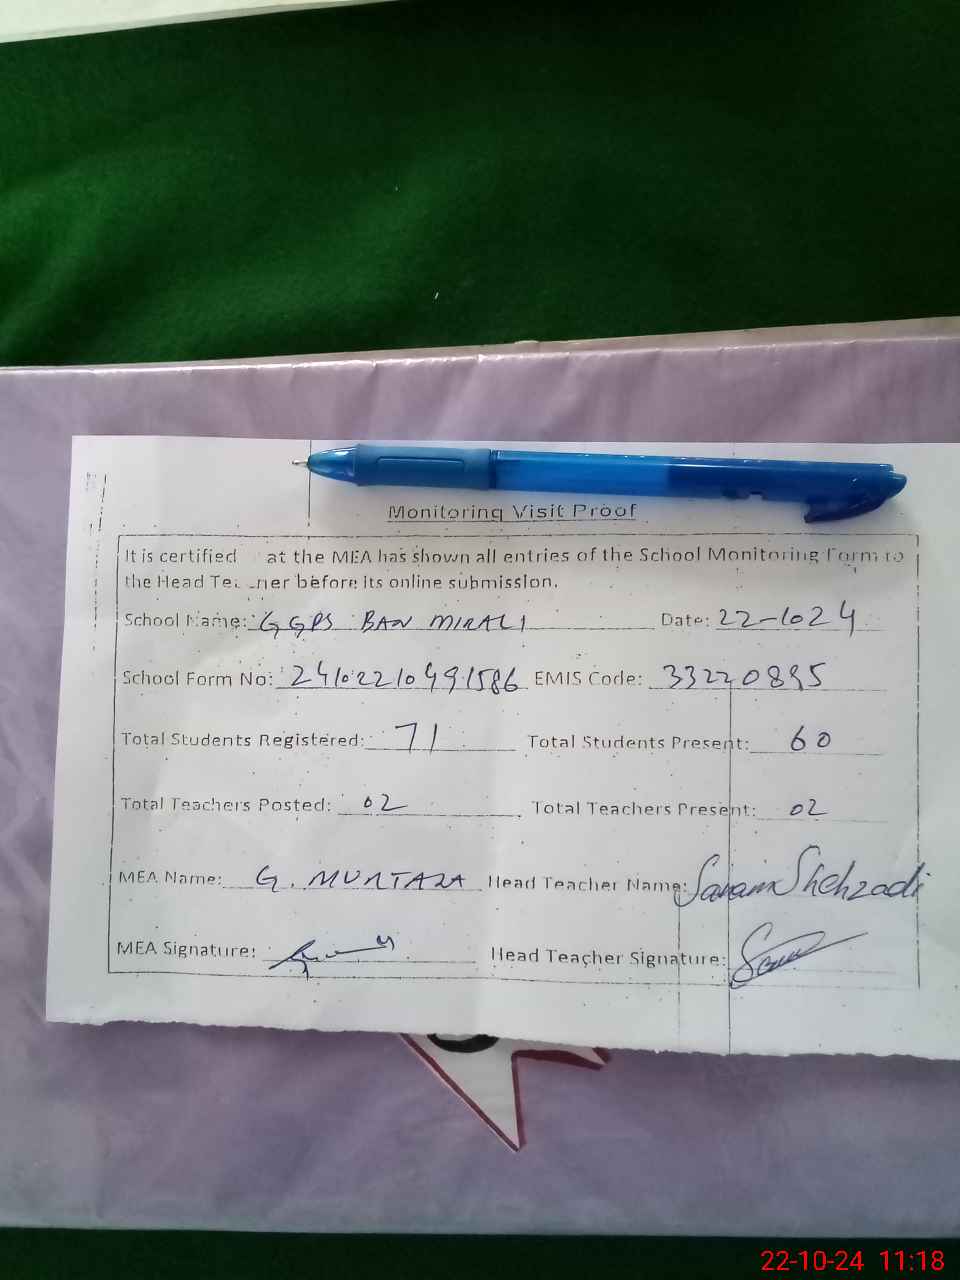 Monitoring Visit Proof
It is certified at the MEA has shown all entries of the School Monitoring Form to
the Head Teacher before its online submission.
School Name: GGPS BAN MIRALI Date: 22-1024
School Form No: 24102210491586 EMIS Code: 33220895
Total Students Registered: 71 Total Students Present: 60
Total Teachers Posted: 02 Total Teachers Present: 02
MEA Name: G. MURTAZA Head Teacher Name: Shehzadi
MEA Signature: Head Teacher Signature:
22-10-24 11:18